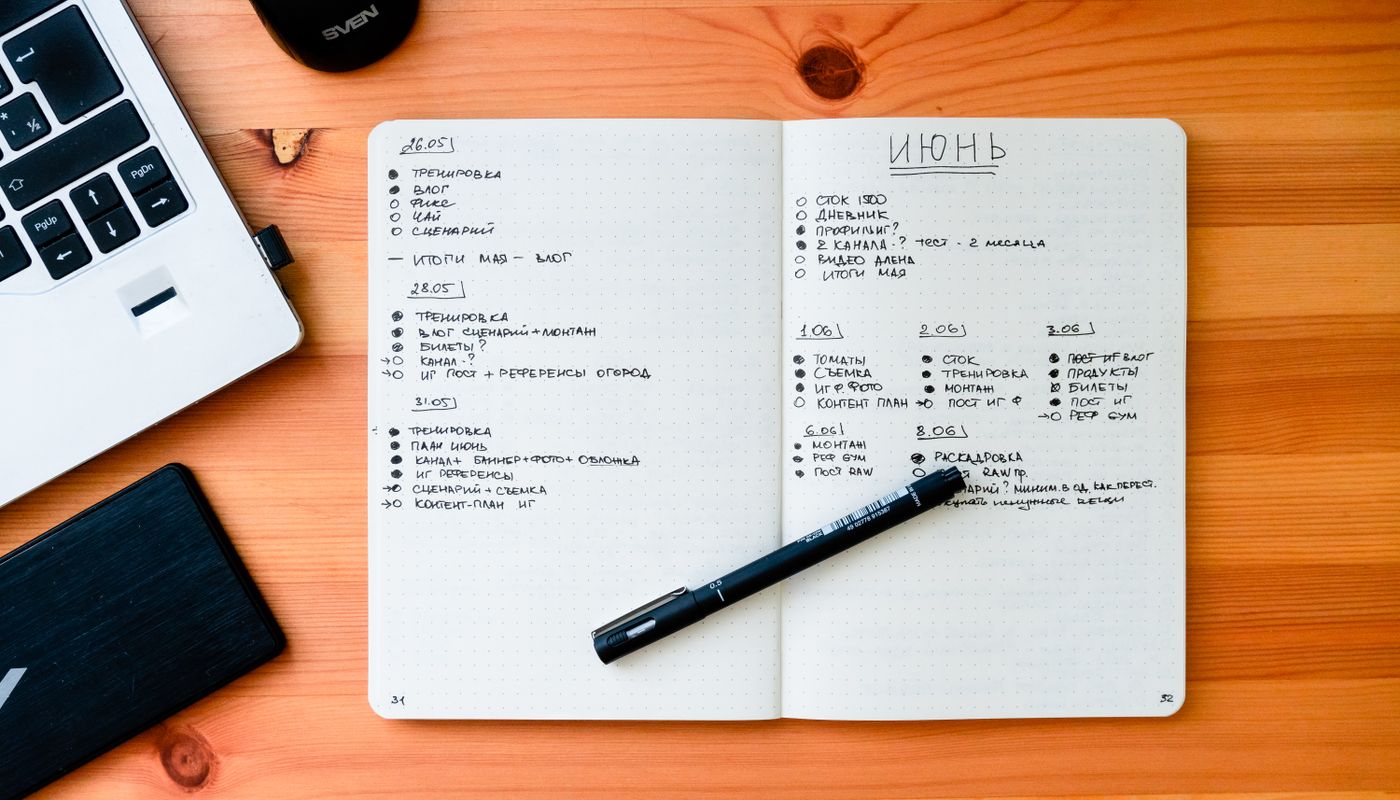 SVEN
*
½
PgDn
PgUp
26.05
ТРЕНИРОВКА
ВЛОГ
ФИКС
ЧАЙ
СЦЕНАРИЙ
— ИТОГИ МАЯ — ВЛОГ
28.05
ТРЕНИРОВКА
ВЛОГ СЦЕНАРИЙ + МОНТАЖ
БИЛЕТЫ?
КАНАЛ - ?
ИГ ПОСТ + РЕФЕРЕНСЫ ОГОРОД
31.05
ТРЕНИРОВКА
ПЛАН ИЮНЬ
КАНАЛ + БАННЕР + ФОТО + ОБЛОЖКА
ИГ РЕФЕРЕНСЫ
СЦЕНАРИЙ + СЪЕМКА
КОНТЕНТ-ПЛАН ИГ
31
ИЮНЬ
СТОК 1500
ДНЕВНИК
ПРОФИЛЬ ИГ?
2 КАНАЛА - ? тест - 2 месяца
ВИДЕО АЛЕНА
ИТОГИ МАЯ
1.06
ТОМАТЫ
СЪЕМКА
ИГ Ф. ФОТО
КОНТЕНТ ПЛАН
2.06
СТОК
ТРЕНИРОВКА
МОНТАЖ
ПОСТ ИГ Ф
3.06
ПОСТ ИГ ВЛОГ
ПРОДУКТЫ
БИЛЕТЫ
ПОСТ ИГ
РЕФ GYM
6.06
МОНТАЖ
РЕФ GYM
ПОСТ RAW
8.06
РАСКАДРОВКА
RAW пр.
МИНИМ. В ОД. КАК ПЕРЕСТ.
ненужные вещи
32
MADE IN
49 02778 915387
BLACK
0.5